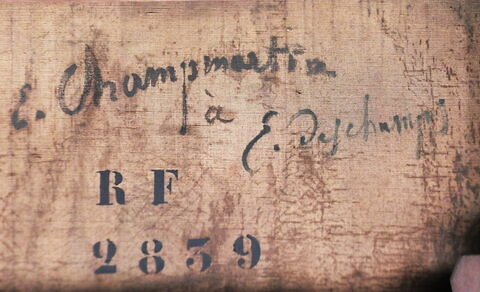 E. Champmartin
à
E. Deschamps
RF
2839